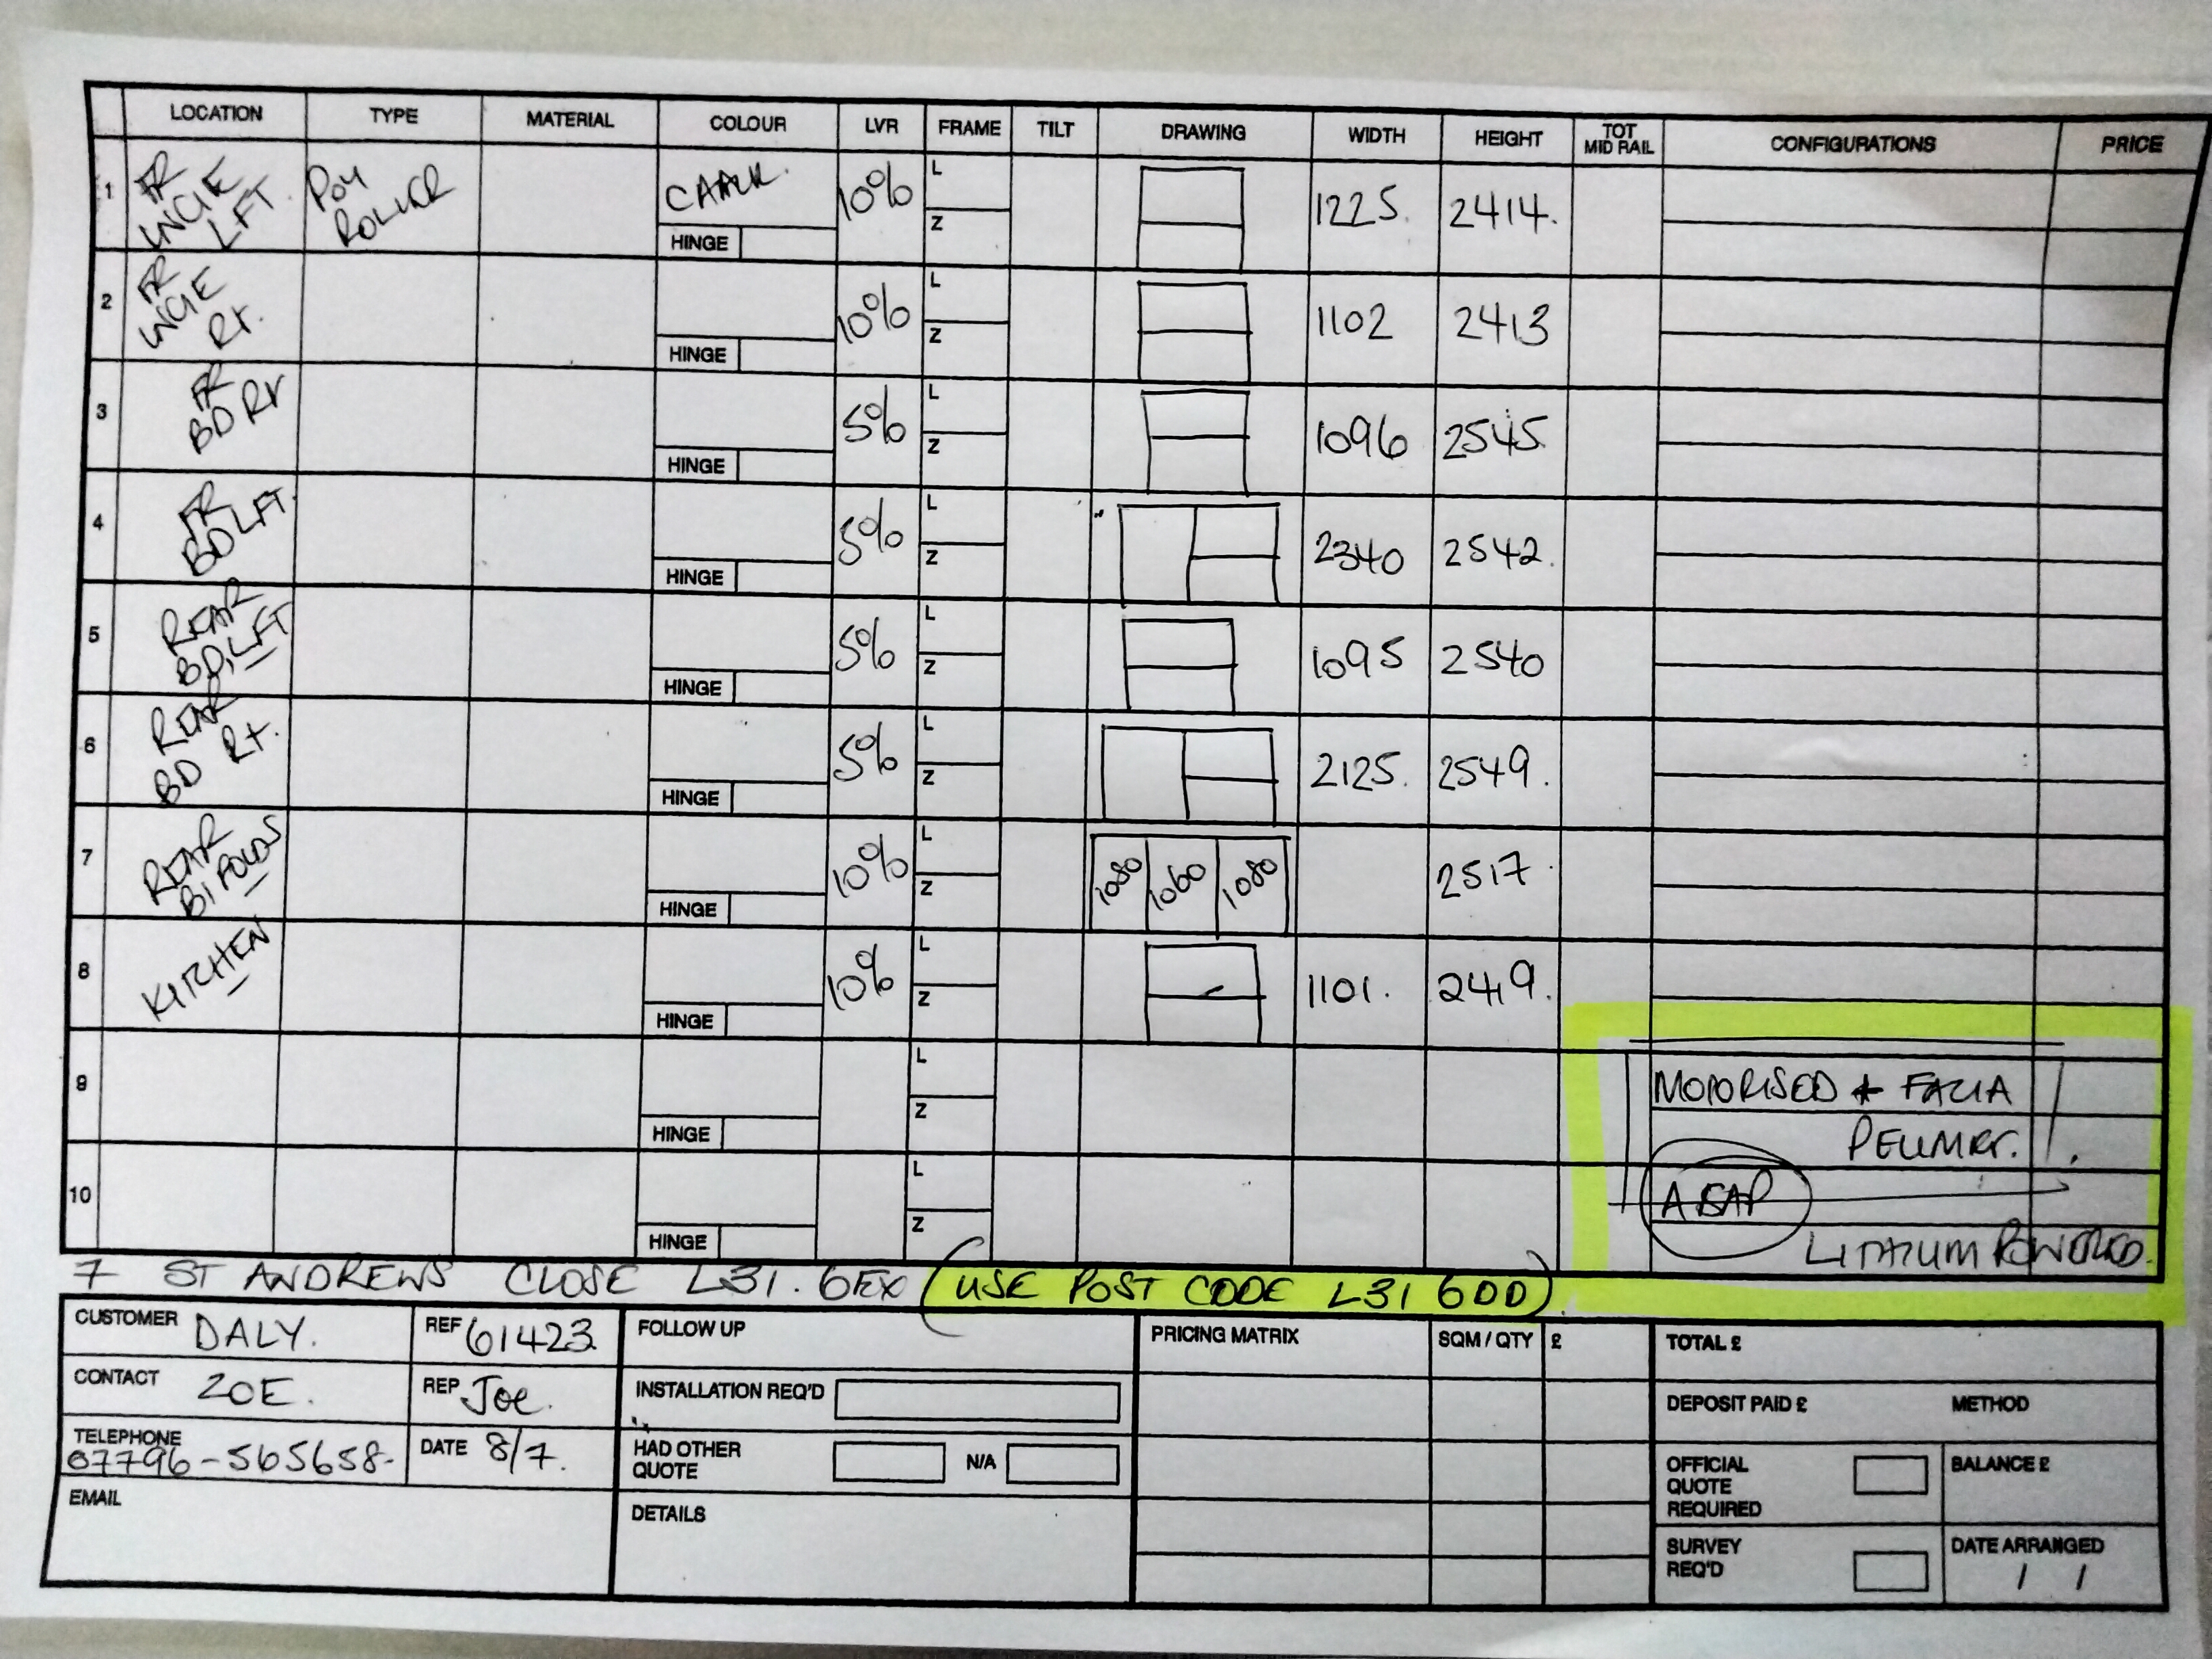 LOCATION TYPE MATERIAL COLOUR LVR FRAME TILT DRAWING WIDTH HEIGHT TOT MID RAIL CONFIGURATIONS PRICE
1 FR LNGIE LFT ROLLER 10% L Z HINGE 1225. 2414.
2 FR LNGIE RT. 10% L Z HINGE 1102 2413
3 FR BD RT 5% L Z HINGE 1096 2545
4 FR BD LFT. 5% L Z HINGE 2340 2542.
5 REAR BD, LFT 5% L Z HINGE 1095 2540
6 REAR BD RT. 5% L Z HINGE 2125. 2549.
7 REAR BIFOLDS 10% L Z HINGE 1080 1060 1080 2517
8 KITCHEN 10% L Z HINGE 1101. 2419.
9 L Z HINGE MOTORISED + FACIA
PELMET.
10 L Z HINGE ASAP
LITHIUM POWERED.
7 ST ANDREWS CLOSE L31. 6EX (USE POST CODE L31 6DD)
CUSTOMER DALY. REF 61423 FOLLOW UP PRICING MATRIX SQM / QTY £ TOTAL £
CONTACT ZOE. REP Joe. INSTALLATION REQ'D DEPOSIT PAID £ METHOD
TELEPHONE 07796-565658- DATE 8/7. HAD OTHER QUOTE N/A OFFICIAL QUOTE REQUIRED BALANCE £
EMAIL DETAILS SURVEY REQ'D DATE ARRANGED / /